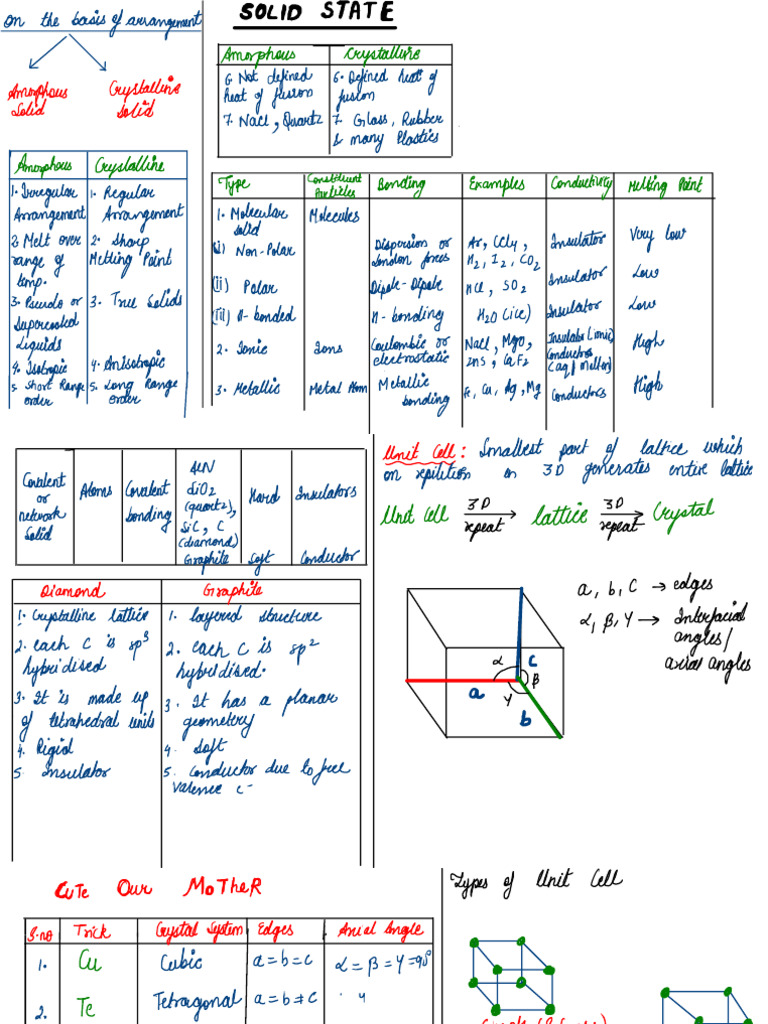 SOLID STATE
On the basis of arrangement
Amorphous Solid
Crystalline Solid
Amorphous Crystalline
1. Irregular Arrangement 1. Regular Arrangement
2. Melt over range of temp. 2. Sharp Melting Point
3. Pseudo or Supercooled Liquids 3. True Solids
4. Isotropic 4. Anisotropic
5. Short Range order 5. Long Range order
Amorphous Crystalline
6. Not defined heat of fusion 6. Defined heat of fusion
7. Nacl, Quartz 7. Glass, Rubber & many Plastics
Type Constituent Particles Bonding Examples Conductivity Melting Point
1. Molecular solid Molecules
(i) Non-Polar Dispersion or London forces Ar, CCl4, H2, I2, CO2 Insulator Very low
(ii) Polar Dipole-Dipole HCl, SO2 Insulator Low
(iii) H-bonded H-bonding H2O (ice) Insulator Low
2. Ionic Ions Coulombic or electrostatic Nacl, MgO, ZnS, CaF2 Insulator (ionic) Conductors (aq/Molten) High
3. Metallic Metal Atom Metallic bonding Fe, Cu, Ag, Mg Conductors High
Covalent or network Solid Atoms Covalent bonding AlN SiO2 (quartz), SiC, C (diamond) Hard Insulators
Graphite Soft Conductor
Unit Cell: Smallest part of lattice which
on repitition in 3D generates entire lattice
Unit Cell 3D repeat lattice 3D repeat Crystal
a, b, c → edges
α, β, γ → Interfacial angles/ axial angles
α c β
a γ
b
Diamond Graphite
1. Crystalline lattice 1. layered structure
2. each C is sp3 hybridised 2. each C is sp2 hybridised.
3. It is made up of tetrahedral units 3. It has a planar geometry
4. Rigid 4. Soft
5. Insulator 5. conductor due to free valence e-
CuTe Our MoTheR
S.no Trick Crystal System Edges Axial Angle
1. Cu Cubic a=b=c α=β=γ=90°
2. Te Tetragonal a=b≠c
Types of Unit Cell